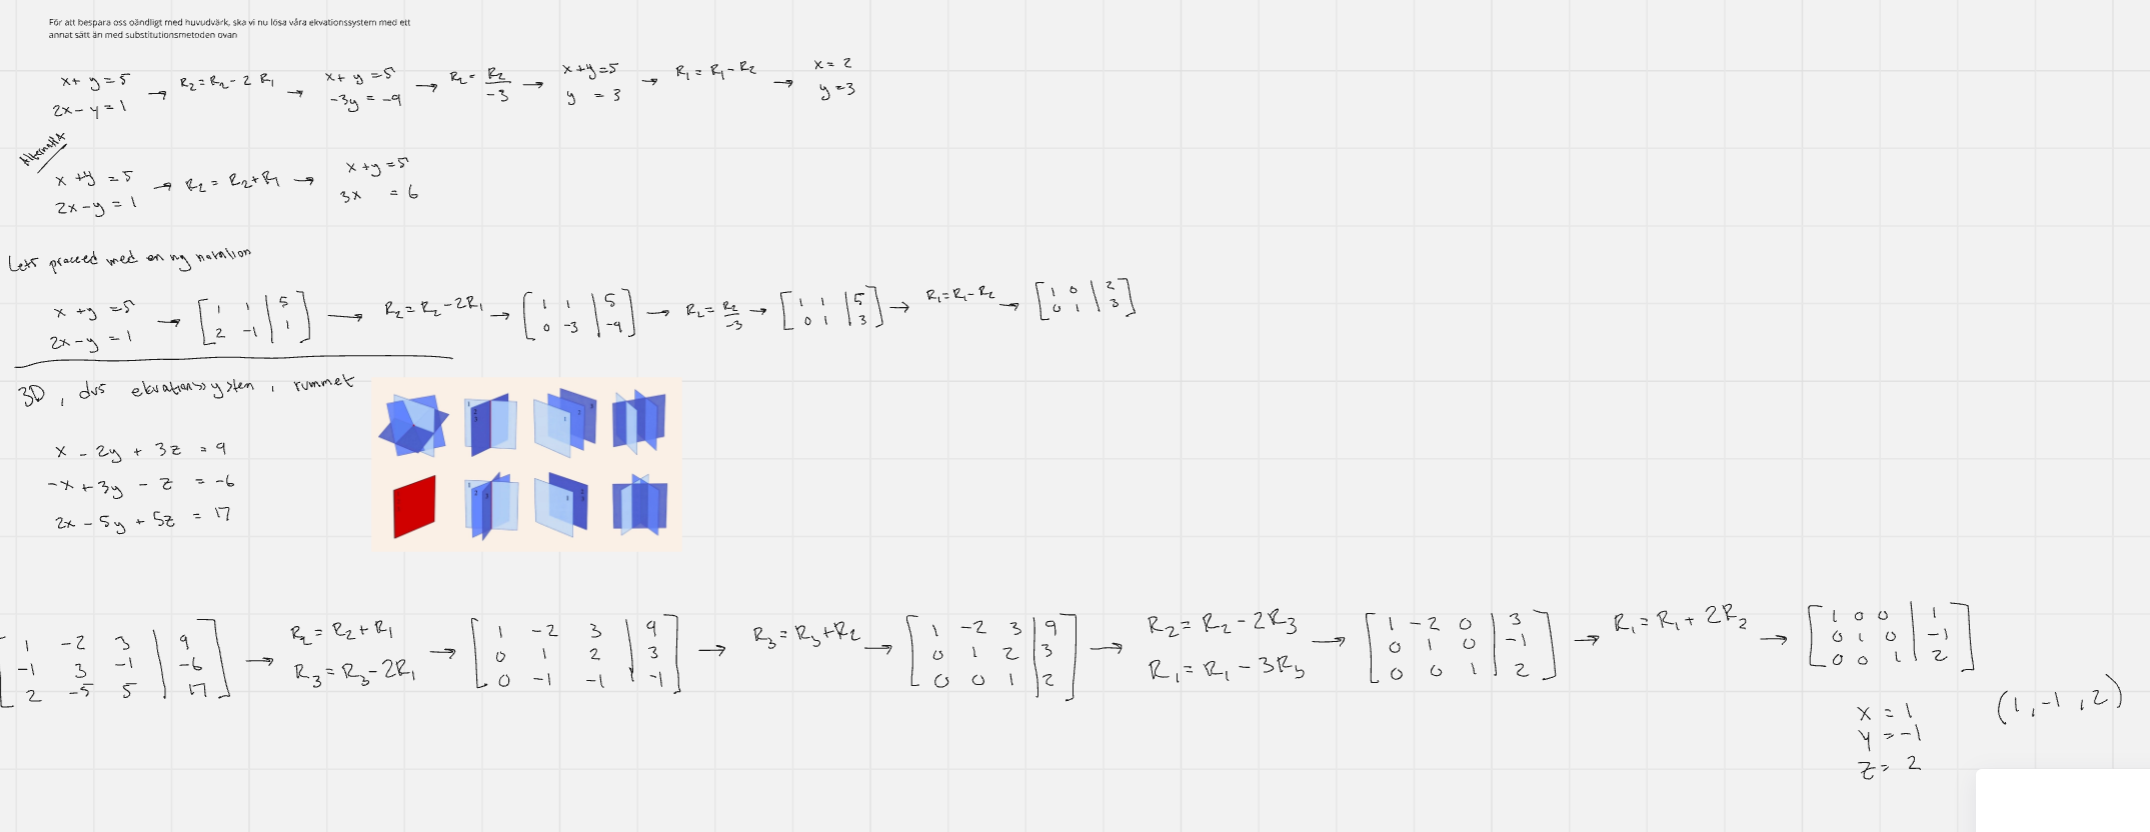 För att bespara oss oändligt med huvudvärk, ska vi nu lösa våra ekvationssystem med ett
annat sätt än med substitutionsmetoden ovan
x + y = 5
2x - y = 1
→ R₂ = R₂ - 2 R₁ →
x + y = 5
-3y = -9
→ R₂ = R₂/-3 →
x + y = 5
y = 3
→ R₁ = R₁ - R₂ →
x = 2
y = 3
Alternativ
x + y = 5
2x - y = 1
→ R₂ = R₂ + R₁ →
x + y = 5
3x = 6
Lets proceed med en ny notation
x + y = 5
2x - y = 1
→
[ 1 1 | 5
2 -1 | 1 ]
→ R₂ = R₂ - 2R₁ →
[ 1 1 | 5
0 -3 | -9 ]
→ R₂ = R₂/-3 →
[ 1 1 | 5
0 1 | 3 ]
→ R₁ = R₁ - R₂ →
[ 1 0 | 2
0 1 | 3 ]
3D, dvs ekvationssystem i rummet
x - 2y + 3z = 9
-x + 3y - z = -6
2x - 5y + 5z = 17
[ 1 -2 3 | 9
-1 3 -1 | -6
2 -5 5 | 17 ]
→
R₂ = R₂ + R₁
R₃ = R₃ - 2R₁
→
[ 1 -2 3 | 9
0 1 2 | 3
0 -1 -1 | -1 ]
→ R₃ = R₃ + R₂ →
[ 1 -2 3 | 9
0 1 2 | 3
0 0 1 | 2 ]
→
R₂ = R₂ - 2R₃
R₁ = R₁ - 3R₃
→
[ 1 -2 0 | 3
0 1 0 | -1
0 0 1 | 2 ]
→ R₁ = R₁ + 2R₂ →
[ 1 0 0 | 1
0 1 0 | -1
0 0 1 | 2 ]
x = 1
y = -1
z = 2
(1, -1, 2)